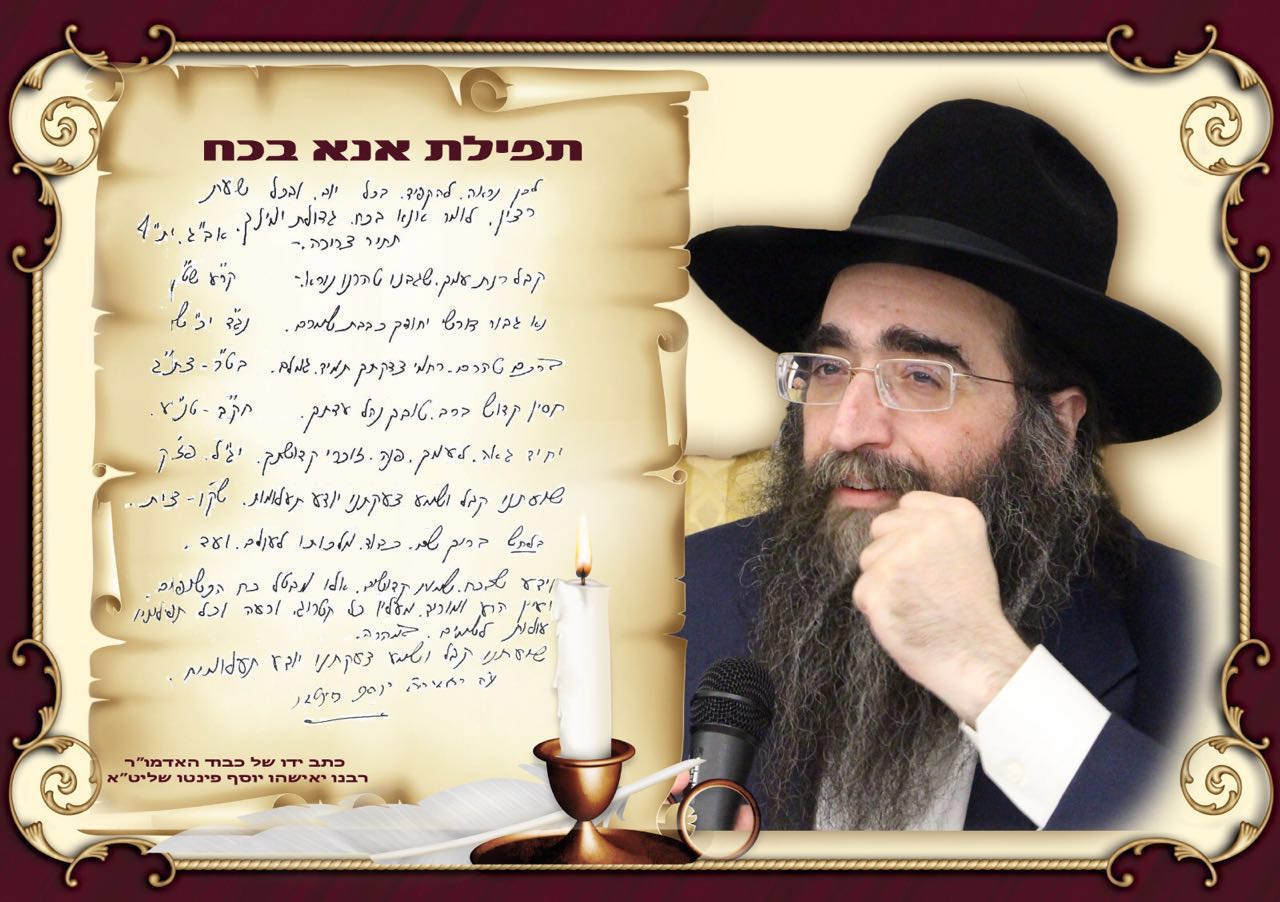 תפילת אנא בכח
לכן נראה. להקפיד. בכל יום. ובכל שעת
רצון. לומר אנא בכח. גדולת ימינך. אב"ג. ית"ץ
תתיר צרורה.-
קבל רנת עמך. שגבנו טהרנו נורא- קר"ע שט"ן
נא גבור דורשי יחודך כבבת שמרם. נג"ד יכ"ש
ברכם טהרם. רחמי צדקתך תמיד. גמלם. בט"ר - צת"ג
חסין קדוש ברב. טובך נהל עדתך. חק"ב - טנ"ע.
יחיד גאה. לעמך. פנה. זוכרי קדושתך. יג"ל. פז"ק
שועתנו קבל ושמע צעקתנו יודע תעלומות. שק"ו - צית..
בלחש ברוך שם. כבוד. מלכותו לעולם. ועד.
וידע שבכח. שמות קדושים. אלו מבטל כח הכשופים.
ועין הרע ומוריד. מעליו כל קטרוג. ורעה וכל תפילותיו
עולות לשמים. במהרה.
שועתנו קבל ושמע צעקתנו יודע תעלומות.
יאשיהו יוסף פינטו
כתב ידו של כבוד האדמו״ר
רבנו יאישהו יוסף פינטו שליט״א